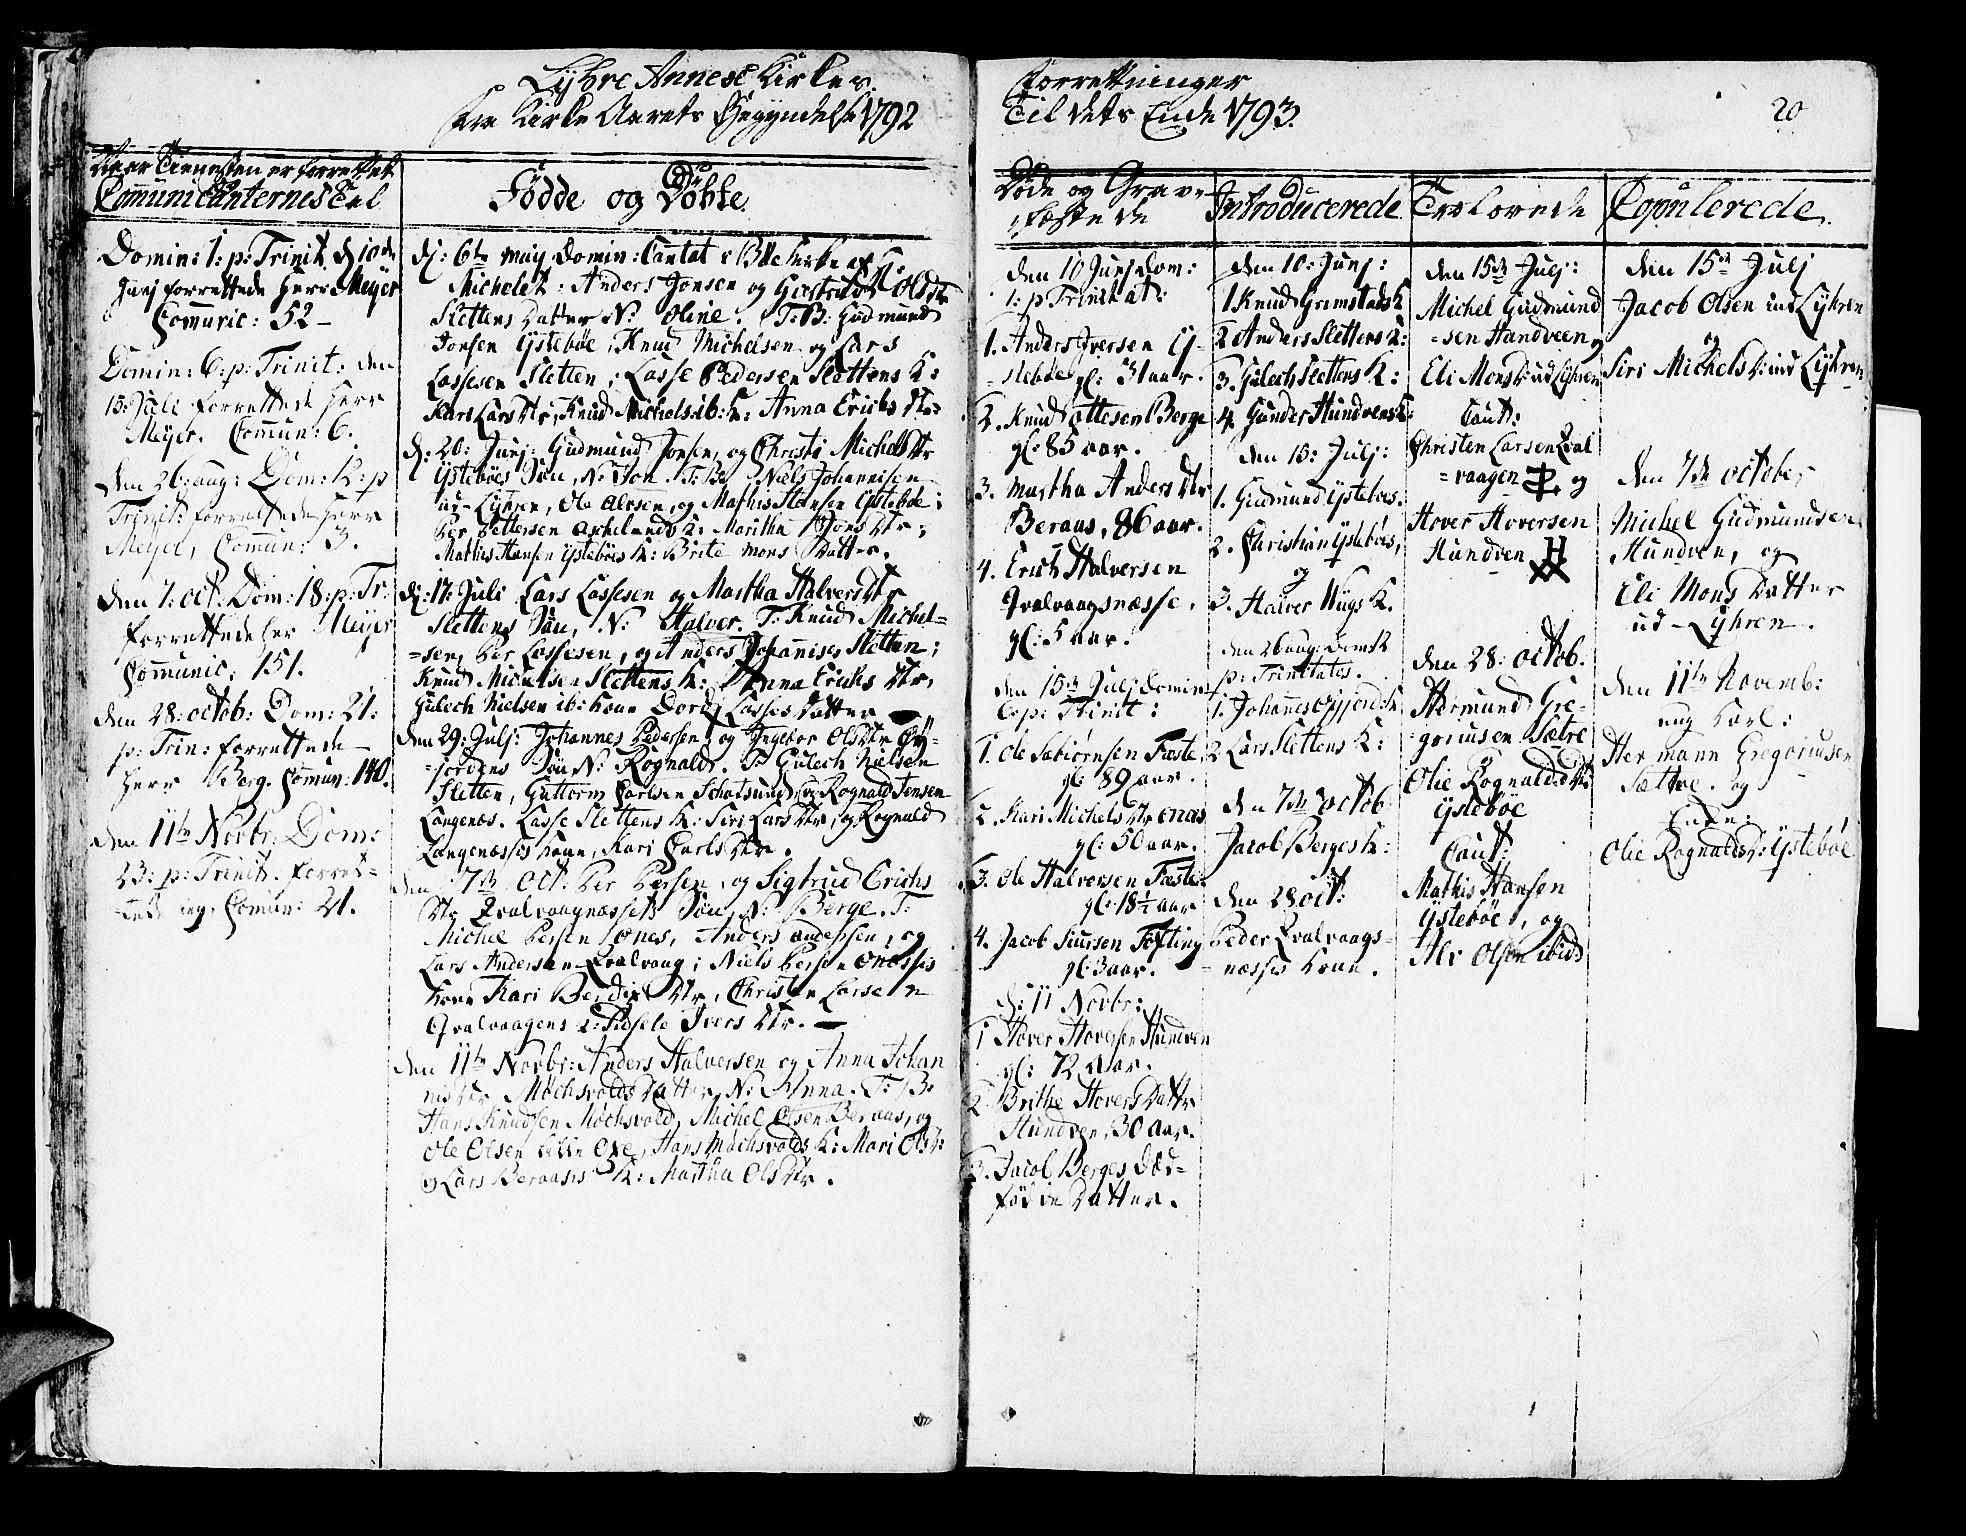 Lyhre Annexe Kirkes
fra Kirke Aarets Begyndelse 1792
Naar Tienesten er forrettet
Communicanternes Tal
Domin: 1: p: Trinit. d 10de
Junj forrettede Herr Meyer
Communic: 52 -
Domin: 6: p: Trinit: den
15: Juli forrettede Herr
Meyer. Commun: 6.
den 26: aug: Dom: 12: p
Trinit: forrettede Herr
Meyer, Commun: 3.
den 7: oct. Dom: 18: p: Tr:
forrettede her Meyer
Communic: 151.
den 28: octob: Dom: 21:
p: Trin: forrettede
Herr Berg. Commun: 140.
den 11te Novbr: Dom:
23: p: Trinit. forret=
Commun: 21.
Fødde og Døbte.
d: 6te maij Domin: Cantat
Anders Jonsen og Giertrud Olsdtr
Slettens Datter N: Oline. T: B: Gudmund
Jonsen Ystebøe, Knud Michelsen og Lars
Lassesen Sletten; Lasse Pedersen Slettens K:
Kari Larsdtr, Knud Michels ib: K: Anna Erichs dtr
d: 20: Junj: Gudmund Jonsen, og Christi Michelsdtr
Ystebøes Søn, N: Jon. T: B: Niels Johannisen
ud-Lyhren, Ole Alvsen, og Mathis Hansen Ystebøe;
Per Pettersen Askelands K: Maritha Jons dtr;
Mathis Hansen Ystebøes K: Brite Mons Datter.
d: 17: Juli Lars Lassesen og Martha Halversdtr
Slettens Søn, N: Halver. T: Knud Michel=
=sen, Per Lassesen, og Anders Johannises Sletten;
Knud Michelsen Slettens K: Anna Erichs dtr,
Gulech Nielsen ib: Kone Dord. Lasses Datter
den 29: Julj: Johannes Pedersen, og Ingebor Olsdtr Øy=
=fordens Søn N: Rognald. T: Gulech Nielsen
Sletten, Guttorm Carlsen Skatsund, og Rognald Jensen
Langenæs. Lasse Slettens K: Siri Larsdtr, og Rognald
Langenæsses Kone, Kari Carlsdtr.
den 7de Oct. Per Persen, og Sigtrud Erichs
dtr Qvalvaagnæssets Søn, N: Berge. T:
Michel Persen Ones, Anders Andersen, og
Lars Andersen Qvalvaag; Niels Persen Onæsses
Kone Kari Bendix dtr, Christen Larsen
Qvalvaagens K: Sidsele Ivers dtr.
den 11te Novbr: Anders Halversen og Anna Johan
nis dtr Møchsvolds Datter, N: Anna. T: B:
Hans Knudsen Møchsvold, Michel Olsen Beraas, og
Ole Olsen lille Oxe, Hans Møchsvolds K: Mari Olsd:
og Lars Beraases K: Martha Ols dtr.
Forrettninger
Til dets Ende 1793.
20
Døde og Grave
fæstede
den 10 Junj Dom:
1: p Trinitat:
1. Anders Iversen Y-
stebøe gl: 31 aar.
2. Knud Ottesen Berge
gl: 85 aar.
3. Martha Anders dtr
Beraas, 86 aar.
4. Erich Halversen
Qvalvaagsnæsse,
gl: 5 aar.
den 15de Julj Domin
6: p: Trinit:
1. Ole Sabiørnsen Taste
gl: 89 aar.
2. Kari Michels dtr Onas
gl: 50 aar.
3. Ole Halversen Taste
gl: 18½ aar
4. Jacob Siursen Tofting
gl: 3 aar.
d: 11 Novbr:
1 Hover Hoversen Hundven
gl: 72 aar.
2 Brithe Hovers Dattr
Hundven, 30 aar.
3. Jacob Berges død=
fødde Datter.
Introducerede
den 10: Junj:
1 Knud Grimstads K
2 Anders Slettens K:
3. Gulech Slettens K:
4. Gunder Hundvens K:
den 15: Julj:
1. Gudmund Ystebøes:
2. Christian Ystebøes,
og
3. Halver Wiigs K.
den 26 aug: Dom 12
p: Trinitatis.
1. Johannes Øyfiord: K
2 Lars Slettens K:
den 7de octob
Jacob Berges K:
den 28 oct:
Peder Qvalvaags=
=næsses Kone.
Trolovede
den 15de Julj:
Michel Gudmund
=sen Handveen og
Eli Mons D: ud Lyhren
Caut:
Christen Larsen Qval
=vaagen og
Hover Hoversen
Hundven H
den 28: octob.
Hermund Gre=
=goriusen Sætre
Olie Rognalds dtr
Ystebøe
Caut:
Mathis Hansen
Ystebøe, og
Alv Olsen ibid:
Copulerede.
den 15de Julj
Jacob Olsen ind Lyhren
og
Siri Michels D: ind Lyhren
den 7de october
Michel Gudmundsen
Hundven, og
Eli Mons Datter
ud-Lyhren.
den 11te Novemb:
ung Karl:
Hermann Gregoriusen
Sættre. og
Olie Rognalds D: Ystebøe